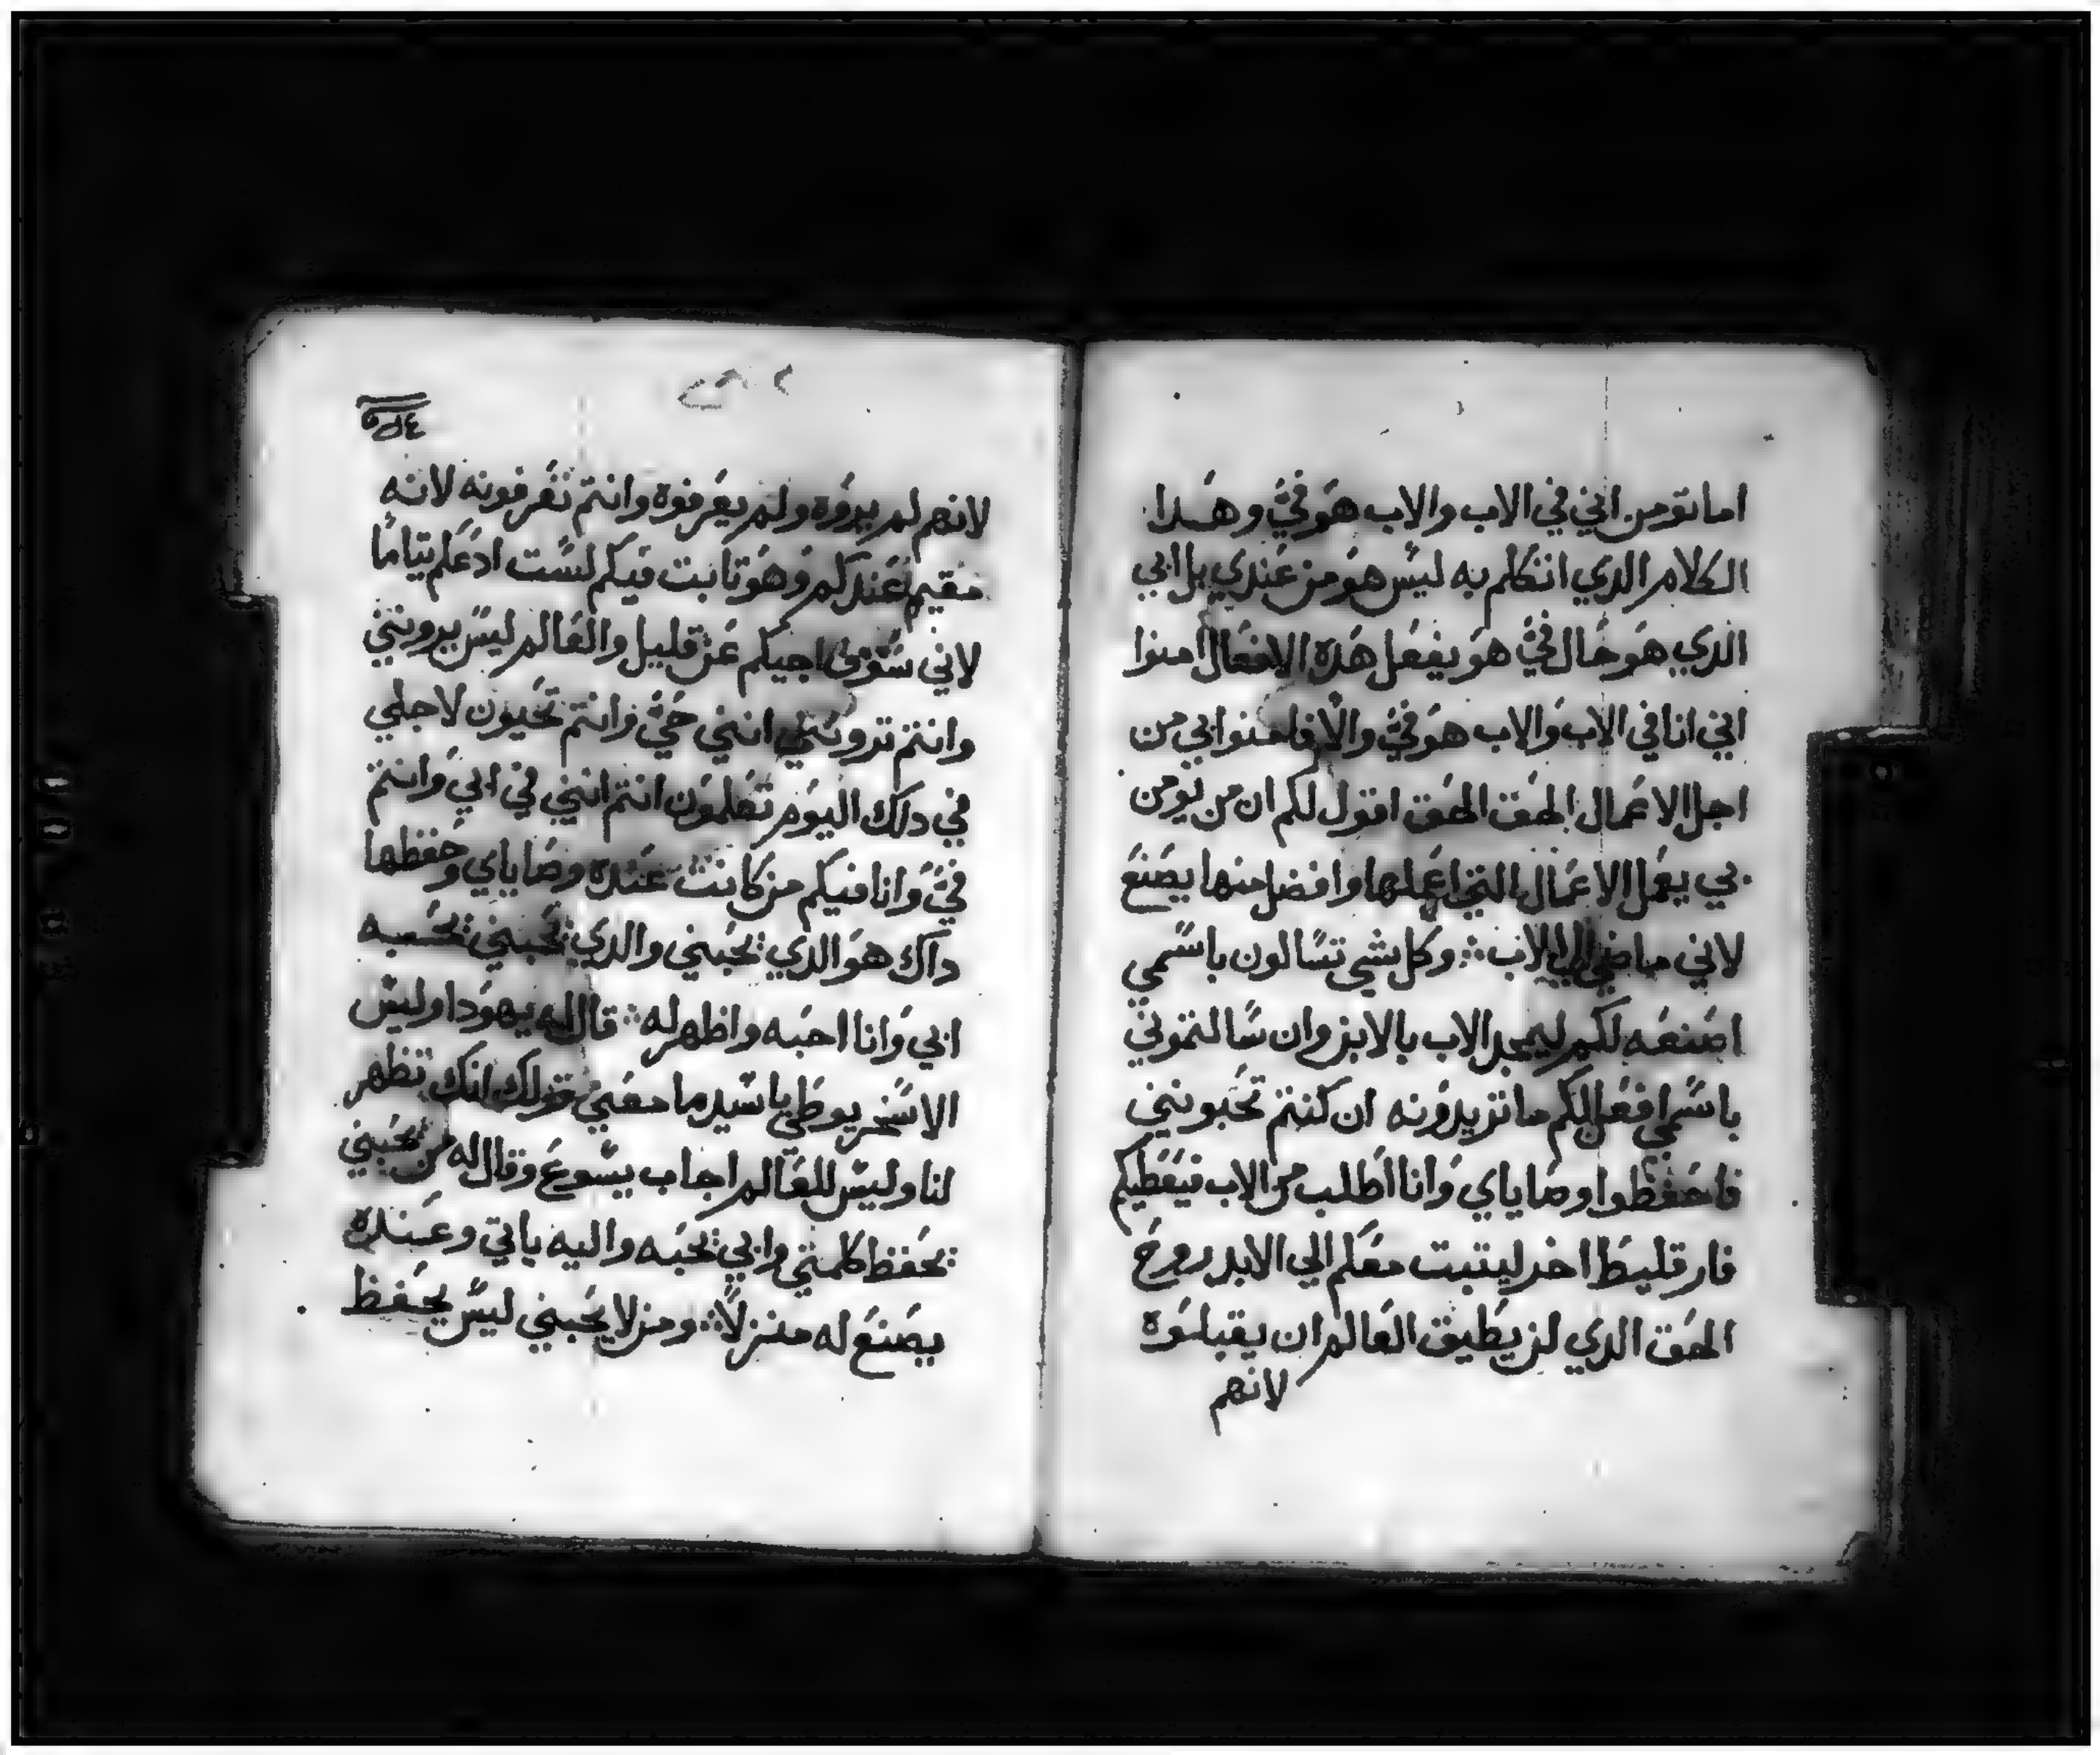 اما تومن اني في الاب والاب هو فيَّ وهدا
الكلام الدي اتكلم به ليس هو من عندي بل ابي
الدي هو حال فيَّ هو يفعل هده الافعال امنوا
اني انا في الاب والاب هو فيَّ والا فامنوا بي من
اجل الاعمال الحق الحق اقول لكم ان من يومن
بي يعمل الاعمال التي اعملها وافضل منها يصنع
لاني ماضي الي الاب ⁘ وكل شي تسالون باسمي
اصنعه لكم ليمجد الاب بالابن وان سالتموني
باسمي افعل لكم ما تريدونه ان كنتم تحبونني
فاحفظوا وصاياي وانا اطلب من الاب فيعطيكم
فارقليط اخر ليتبت معكم الي الابد روح
الحق الدي لن يطيق العالم ان يقبلوه
لانهم
لانهم لم يروه ولم يعرفوه وانتم تعرفونه لانه
مقيم عندكم وهو تابت فيكم لست ادعكم يتاما
لاني سوف اجيكم عن قليل والعالم ليس يرونني
وانتم ترونني انني حيَّ وانتم تحيون لاجلي
في دلك اليوم تعلمون انتم انني في ابي وانتم
فيَّ وانا فيكم من كانت عنده وصاياي وحفظها
داك هو الدي يحبني والدي يحبني يحبه
ابي وانا احبه واظهر له ⁘ قال له يهودا وليس
الاسخريوطي يا سيد ما معني قولك انك تظهر
لنا وليس للعالم اجاب يسوع وقال له من يحبني
يحفظ كلمتي وابي يحبه واليه ياتي وعنده
يصنع له منزلاً ⁘ ومن لا يحبني ليس يحفظ